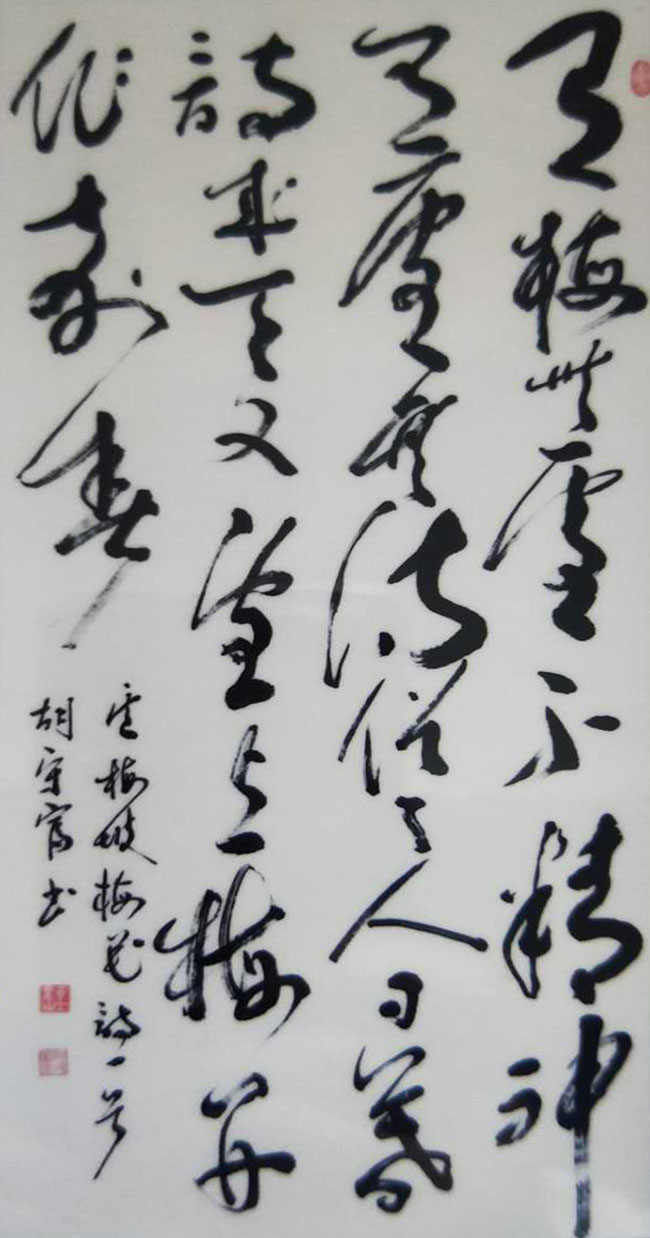 有梅無雪不精神
有雪無詩俗了人日暮
詩成天又雪与梅并
作十分春
卢梅坡梅花詩一首
胡守富书